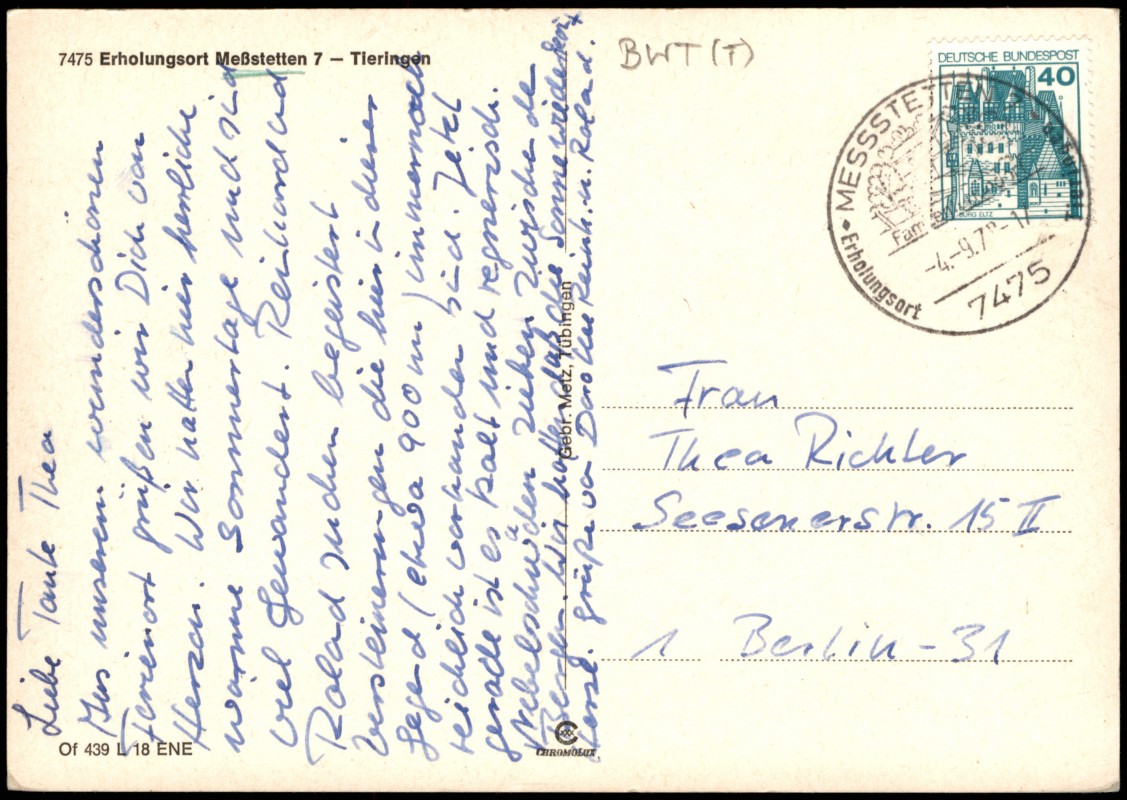 7475 Erholungsort Meßstetten 7 – Tieringen
BWT (T)
DEUTSCHE BUNDESPOST
40
BURG ELTZ
MESSSTETTEN
Erholungsort
7475
Liebe Tante Thea
Aus unserem wunderschönen
Ferienort grüßen wir Dich von
Herzen. Wir hatten hier herrliche
warme Sommertage und sind
viel gewandert. Reinhard und
Roland suchen begeistert
Versteinerungen die hier in dieser
Gegend (etwa 900 m) immer noch
reichlich vorhanden sind. Jetzt
gerade ist es kalt und regnerisch.
Nebelschwaden ziehen zwischen de
Bergen. Wir hoffen daß die Sonne wieder
Herzl. grüße von Doro Reinh. u. Roland.
Gebr. Metz, Tübingen
Frau
Thea Richter
Seesenerstr. 15 II
1 Berlin-31
Of 439 L 18 ENE
CHROMOLUX